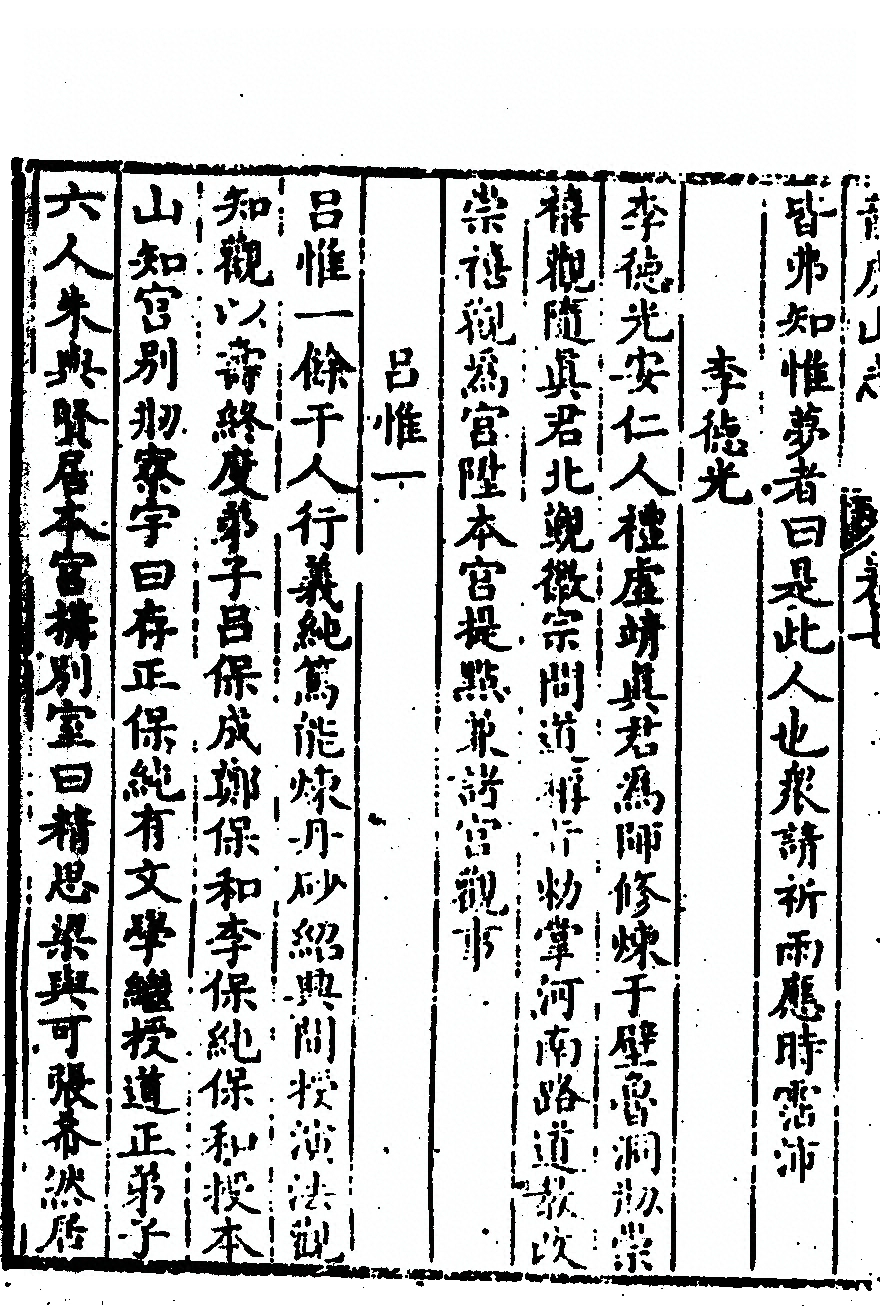 龍虎山志 卷上
皆弗知惟夢者曰是此人也衆請祈雨應時霑沛
李德光
李德光安仁人禮虛靖眞君爲師修煉于壁魯洞刱崇
禧觀隨眞君北覲徽宗問道 勑掌河南路道教改
崇禧觀爲宮陞本宮提點兼諸宮觀事
呂惟一
呂惟一餘干人行義純篤能煉丹砂紹興間授演法觀
知觀以壽終度弟子呂保成鄭保和李保純保和授本
山知宮別刱寮宇曰存正保純有文學繼授道正弟子
六人朱與賢居本宮搆別室曰精思梁與可張希然居